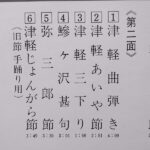 《第二面》
1 津軽曲弾き
2 津軽あいや節
3 津軽三下り
4 鰺ヶ沢甚句
5 弥三郎節
6 津軽じょんがら節
(旧節 手踊り用)